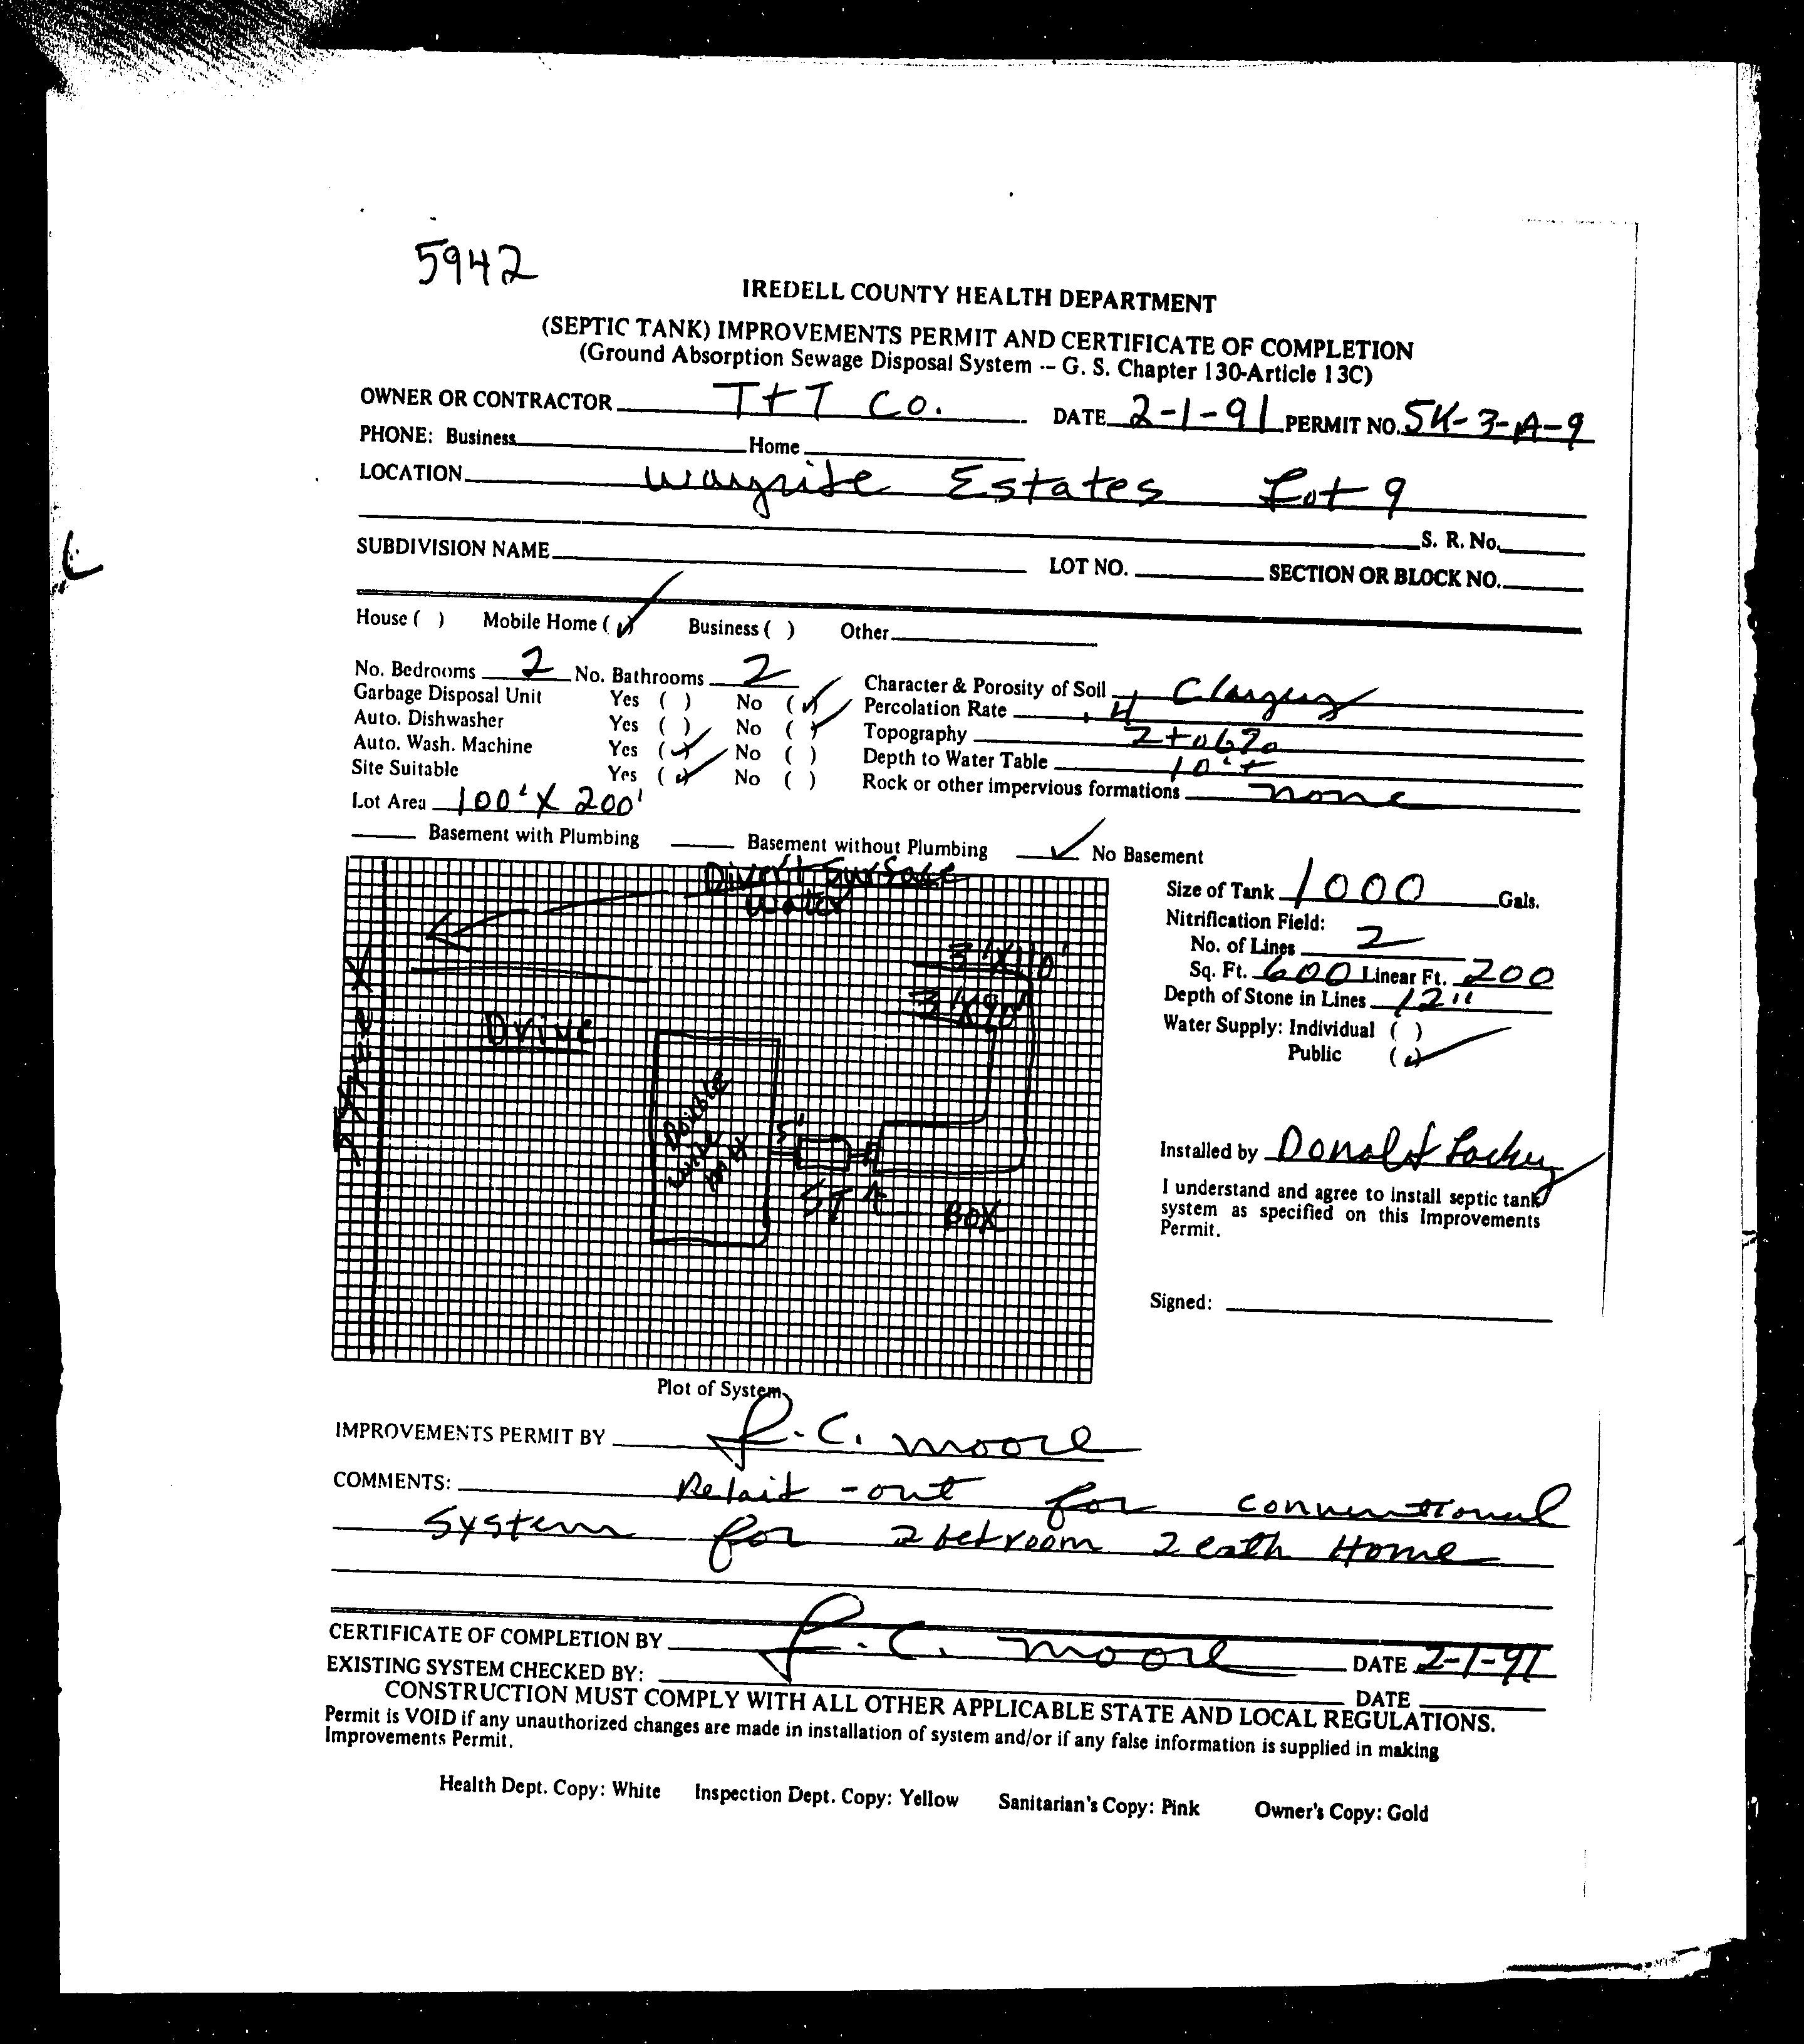 5942
IREDELL COUNTY HEALTH DEPARTMENT
(SEPTIC TANK) IMPROVEMENTS PERMIT AND CERTIFICATE OF COMPLETION
(Ground Absorption Sewage Disposal System -- G. S. Chapter 130-Article 13C)
OWNER OR CONTRACTOR T+T Co. DATE 2-1-91 PERMIT NO. SK-3-A-9
PHONE: Business Home
LOCATION Wayside Estates Lot 9
S. R. No.
SUBDIVISION NAME LOT NO. SECTION OR BLOCK NO.
House ( ) Mobile Home (✓) Business ( ) Other
No. Bedrooms 2 No. Bathrooms 2 Character & Porosity of Soil Clayey
Garbage Disposal Unit Yes ( ) No (✓) Percolation Rate .4
Auto. Dishwasher Yes ( ) No (✓) Topography 2 to 6%
Auto. Wash. Machine Yes (✓) No ( ) Depth to Water Table 10'+
Site Suitable Yes (✓) No ( ) Rock or other impervious formations none
Lot Area 100' X 200'
Basement with Plumbing Basement without Plumbing ✓ No Basement
Divert Surface
Water
3'X110'
3'X90'
Drive
Street
Double
wide
5'
ST
BOX
Size of Tank 1000 Gals.
Nitrification Field:
No. of Lines 2
Sq. Ft. 600 Linear Ft. 200
Depth of Stone in Lines 12"
Water Supply: Individual ( )
Public (✓)
Installed by Donald Lackey
I understand and agree to install septic tank
system as specified on this Improvements
Permit.
Signed:
Plot of System
IMPROVEMENTS PERMIT BY R.C. Moore
COMMENTS: Relaid-out for conventional
System for 2 bedroom 2 bath Home
CERTIFICATE OF COMPLETION BY R.C. Moore DATE 2-1-91
EXISTING SYSTEM CHECKED BY: DATE
CONSTRUCTION MUST COMPLY WITH ALL OTHER APPLICABLE STATE AND LOCAL REGULATIONS.
Permit is VOID if any unauthorized changes are made in installation of system and/or if any false information is supplied in making
Improvements Permit.
Health Dept. Copy: White Inspection Dept. Copy: Yellow Sanitarian's Copy: Pink Owner's Copy: Gold